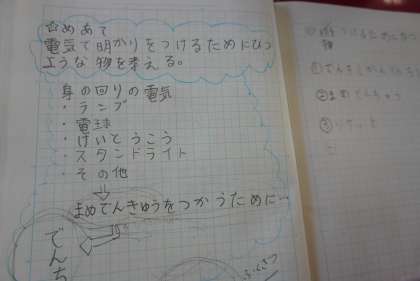 ☆めあて
電気で明かりをつけるためにひつ
ような物を考える。
身の回りの電気
・ランプ
・電球
・けいとうこう
・スタンドライト
・その他
⇩
まめでんきゅうをつかうために…
でんち
①
②まめでんきゅう
③